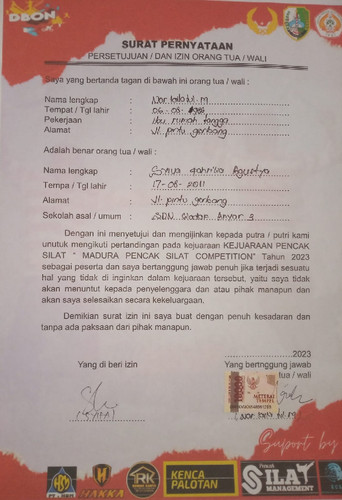 DBON
SURAT PERNYATAAN
PERSETUJUAN / DAN IZIN ORANG TUA / WALI
Saya yang bertanda tangan di bawah ini orang tua / wali :
Nama lengkap : Nor lailatul . M
Tempat / Tgl lahir : 06-08-
Pekerjaan : ibu rumah tangga
Alamat : Jl. pintu gerbang
Adalah benar orang tua / wali :
Nama lengkap :
Tempa / Tgl lahir : 17-08-2011
Alamat : Jl pintu gerbang
Sekolah asal / umum : SDN Gladak Anyar 3
Dengan ini menyetujui dan mengijinkan kepada putra / putri kami
unutuk mengikuti pertandingan pada kejuaraan KEJUARAAN PENCAK
SILAT " MADURA PENCAK SILAT COMPETITION" Tahun 2023
sebagai peserta dan saya bertanggung jawab penuh jika terjadi sesuatu
hal yang tidak di inginkan dalam kejuaraan tersebut, yaitu saya tidak
akan menuntut kepada penyelenggara dan atau pihak manapun dan
akan saya selesaikan secara kekeluargaan.
Demikian surat izin ini saya buat dengan penuh kesadaran dan
tanpa ada paksaan dari pihak manapun.
2023
Yang di beri izin
Yang bertnggung jawab
tua / wali
10000
METERAI
TEMPEL
Nor lailatul M
Suport by
HBM
HAKKA
RK
KENCA
PALOTAN
Pencak
SILAT
MANAGEMENT